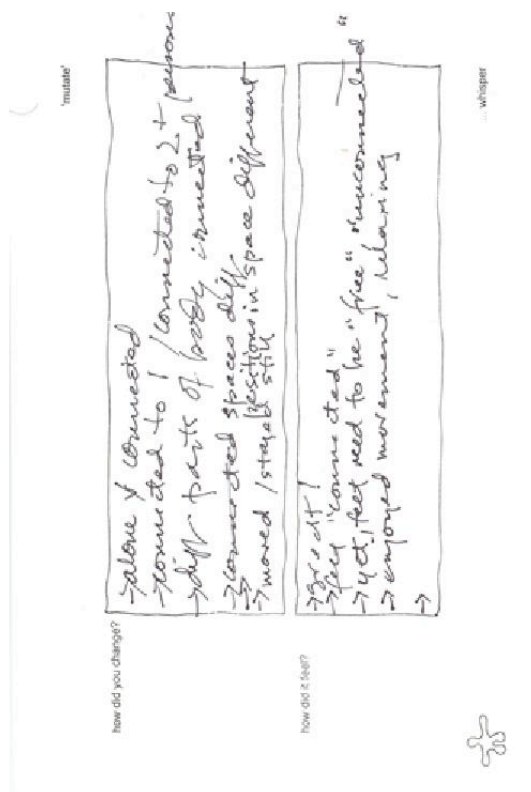 'mutate'
how did you change?
→ alone & connected
→ connected to 1 / connected to 2 + persons
→ diff parts of body connected
→ connected spaces diff.
→ positions in space different
→ moved / stayed still
how did it feel?
→ great!
→ feel "connected"
→ yet, feel need to be "free" "unconnected"
→ enjoyed movement, relaxing
→
... whisper